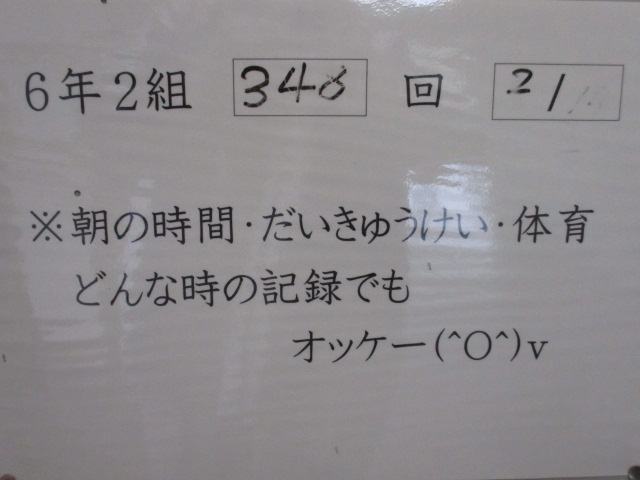 6年2組 346 回 21
※朝の時間・だいきゅうけい・体育
どんな時の記録でも
オッケー(^O^)v